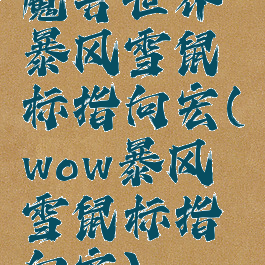 魔兽世界
暴风雪鼠
标指向宏(
wow暴风
雪鼠标指
向宏)